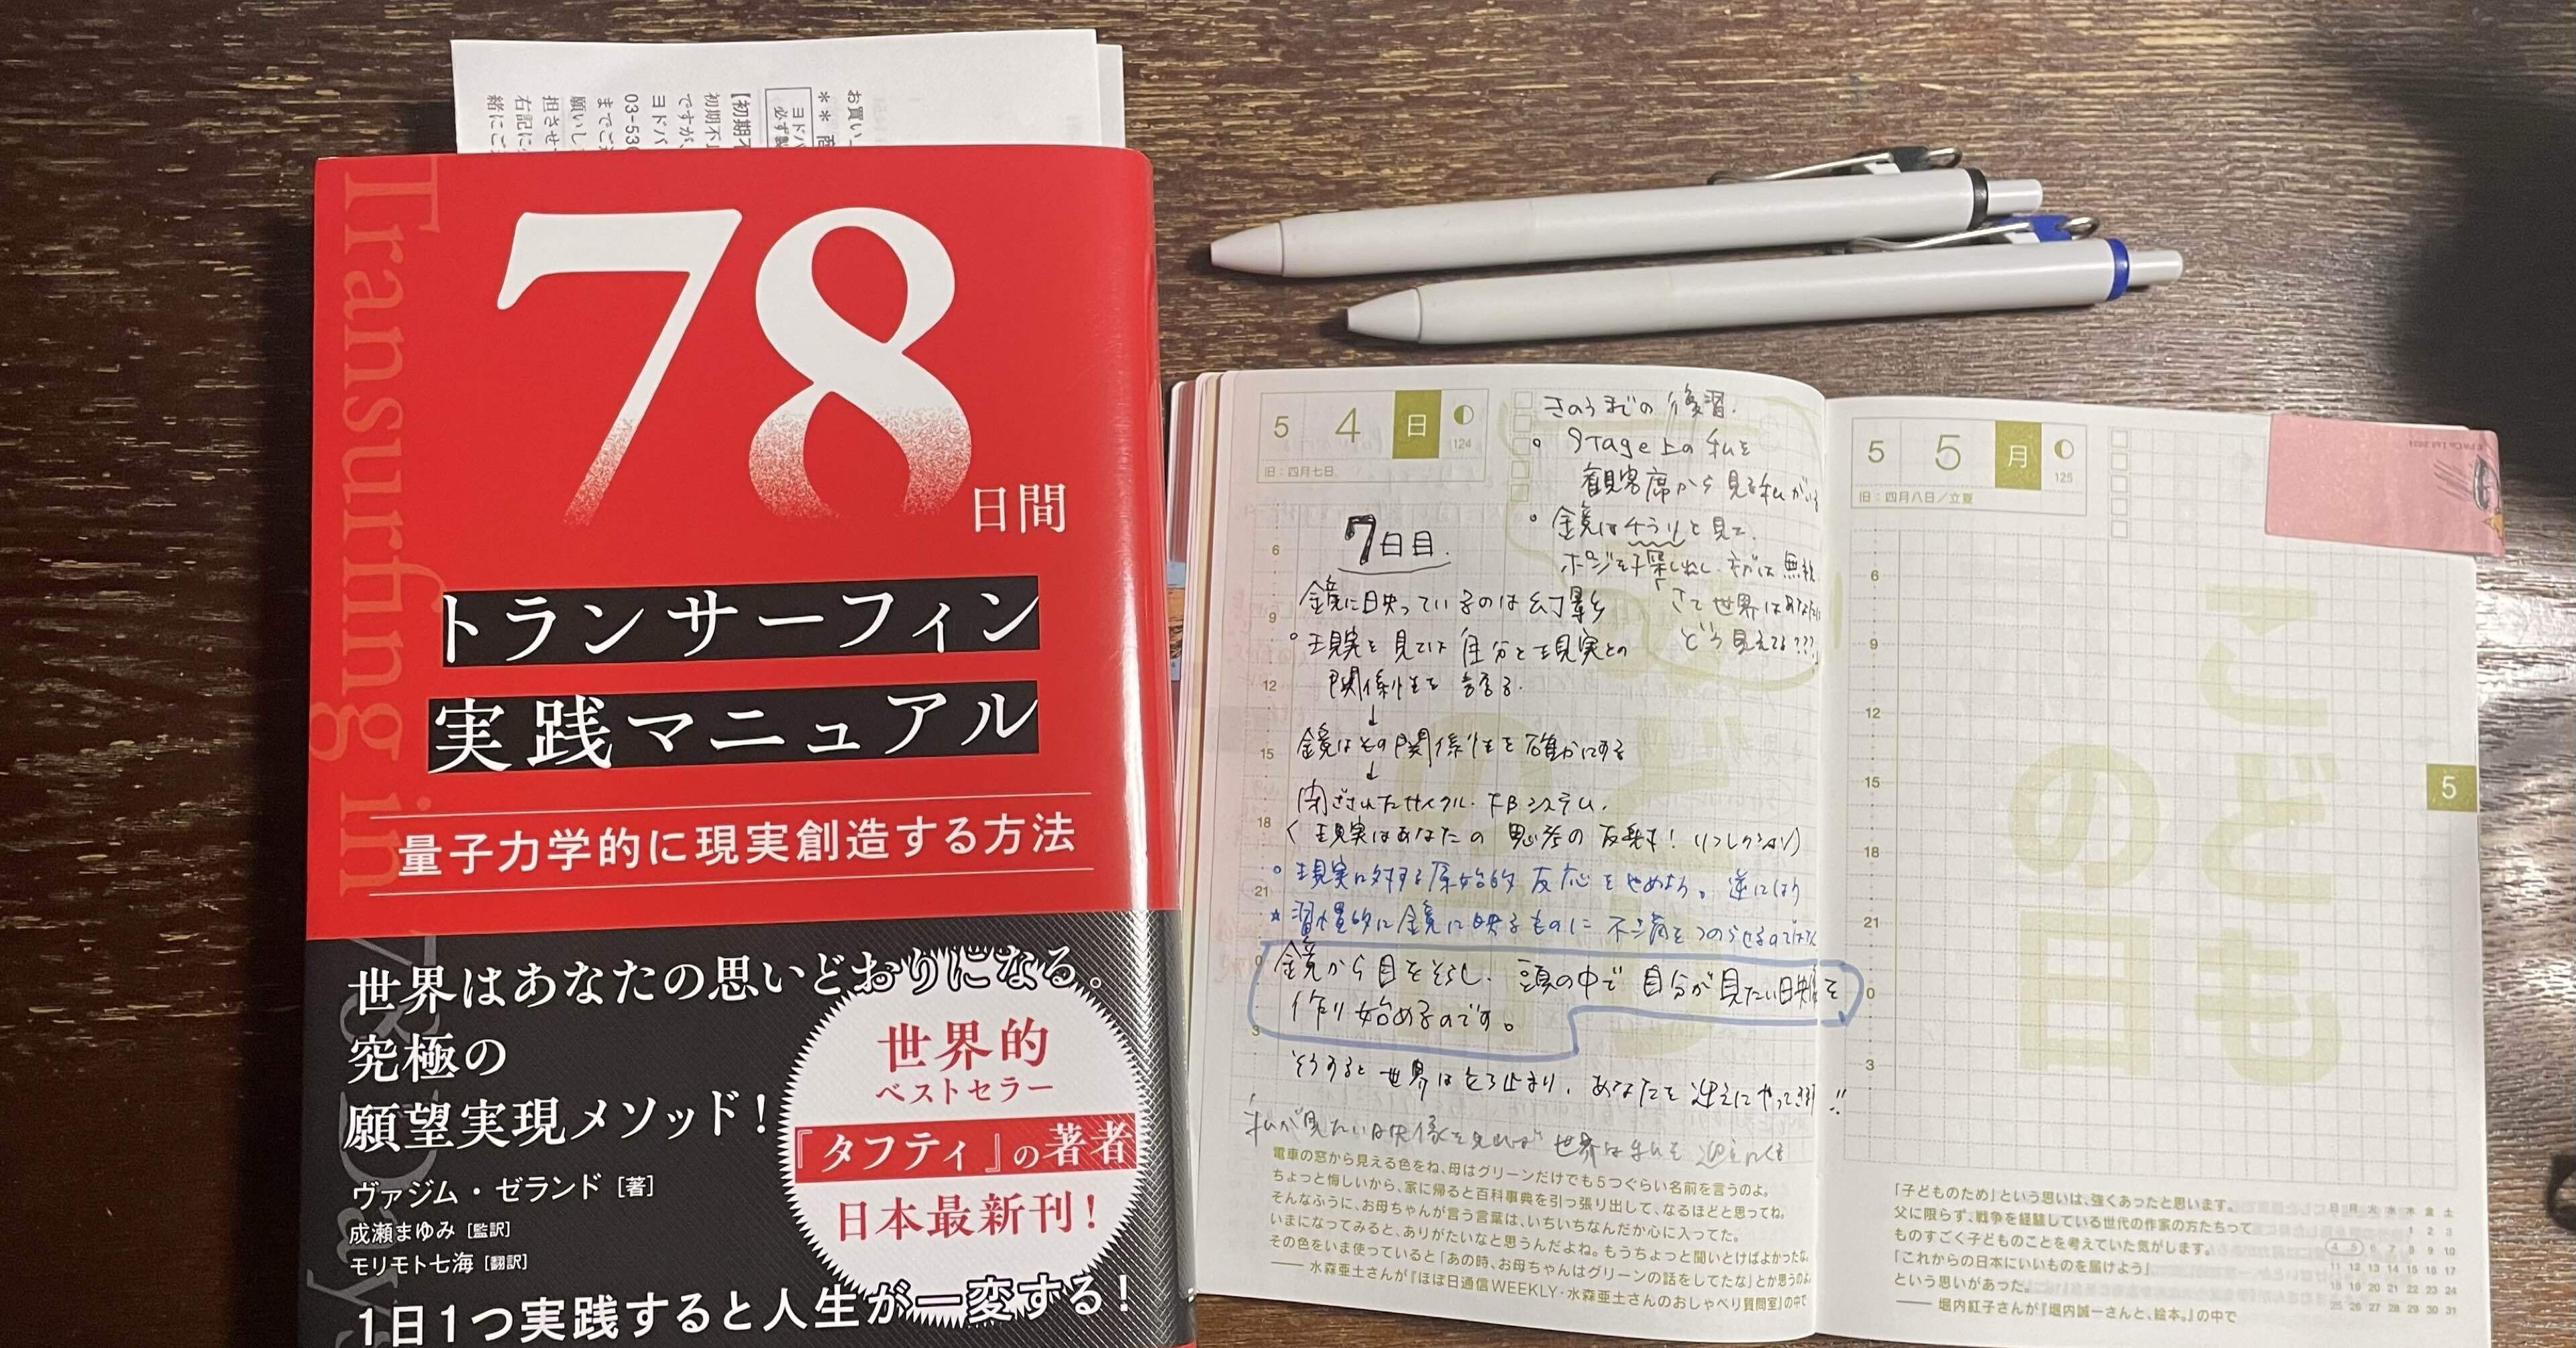 Transurfing in 78 Days
78
日間
トランサーフィン
実践マニュアル
量子力学的に現実創造する方法
世界はあなたの思いどおりになる。
究極の
願望実現メソッド!
ヴァジム・ゼランド［著］
成瀬まゆみ［監訳］
モリモト七海［翻訳］
1日1つ実践すると人生が一変する!
世界的
ベストセラー
『タフティ』の著者
日本最新刊!
お買い
ヨドバ
【初期不
初期不
ですが、
ヨドバ
03-530
までご
願いし
担させ
右記に
緒にご
5 4 日
124
旧:四月七日
きのうまでの復習.
Stage上の私を
観客席から見る私がいる
鏡はチラリと見て、
ポジを探し出し、ネガは無視
「さて世界はあなたに
どう見えてる???」
7日目.
鏡に映っているのは幻影
現実を見ては自分と現実との
関係性を語る.
↓
鏡はその関係性を確かにする
↓
閉ざされたサイクル. FBシステム.
(現実はあなたの思考の反射! リフレクション)
現実に対する原始的反応をやめよう。逆にほう
☆習慣的に鏡に映るものに不満をつのらせるのではなく
鏡から目をそらし、頭の中で自分が見たい映像を
作り始めるのです。
そうすると世界は立ち止まり、あなたを迎えにやって来る!!
私が見たい映像を見れば世界は私を迎えにくる
6
9
12
15
18
21
0
3
電車の窓から見える色をね、母はグリーンだけでも5つぐらい名前を言うのよ。
ちょっと悔しいから、家に帰ると百科事典を引っ張り出して、なるほどと思ってね。
そんなふうに、お母ちゃんが言う言葉は、いちいちなんだか心に入ってた。
いまになってみると、ありがたいなと思うんだよね。もうちょっと聞いとけばよかったな。
その色をいま使っていると「あの時、お母ちゃんはグリーンの話をしてたな」とか思うのよ
── 水森亜土さんが『ほぼ日通信WEEKLY・水森亜土さんのおしゃべり質問室』の中で
5 5 月
125
旧:四月八日/立夏
6
9
12
15
18
21
0
3
5
こどもの日
「子どものため」という思いは、強くあったと思います。
父に限らず、戦争を経験している世代の作家の方たちって
ものすごく子どものことを考えていた気がします。
「これからの日本にいいものを届けよう」
という思いがあった。
── 堀内紅子さんが『堀内誠一さんと、絵本。』の中で
日 月 火 水 木 金 土
1 2 3
4 5 6 7 8 9 10
11 12 13 14 15 16 17
18 19 20 21 22 23 24
25 26 27 28 29 30 31